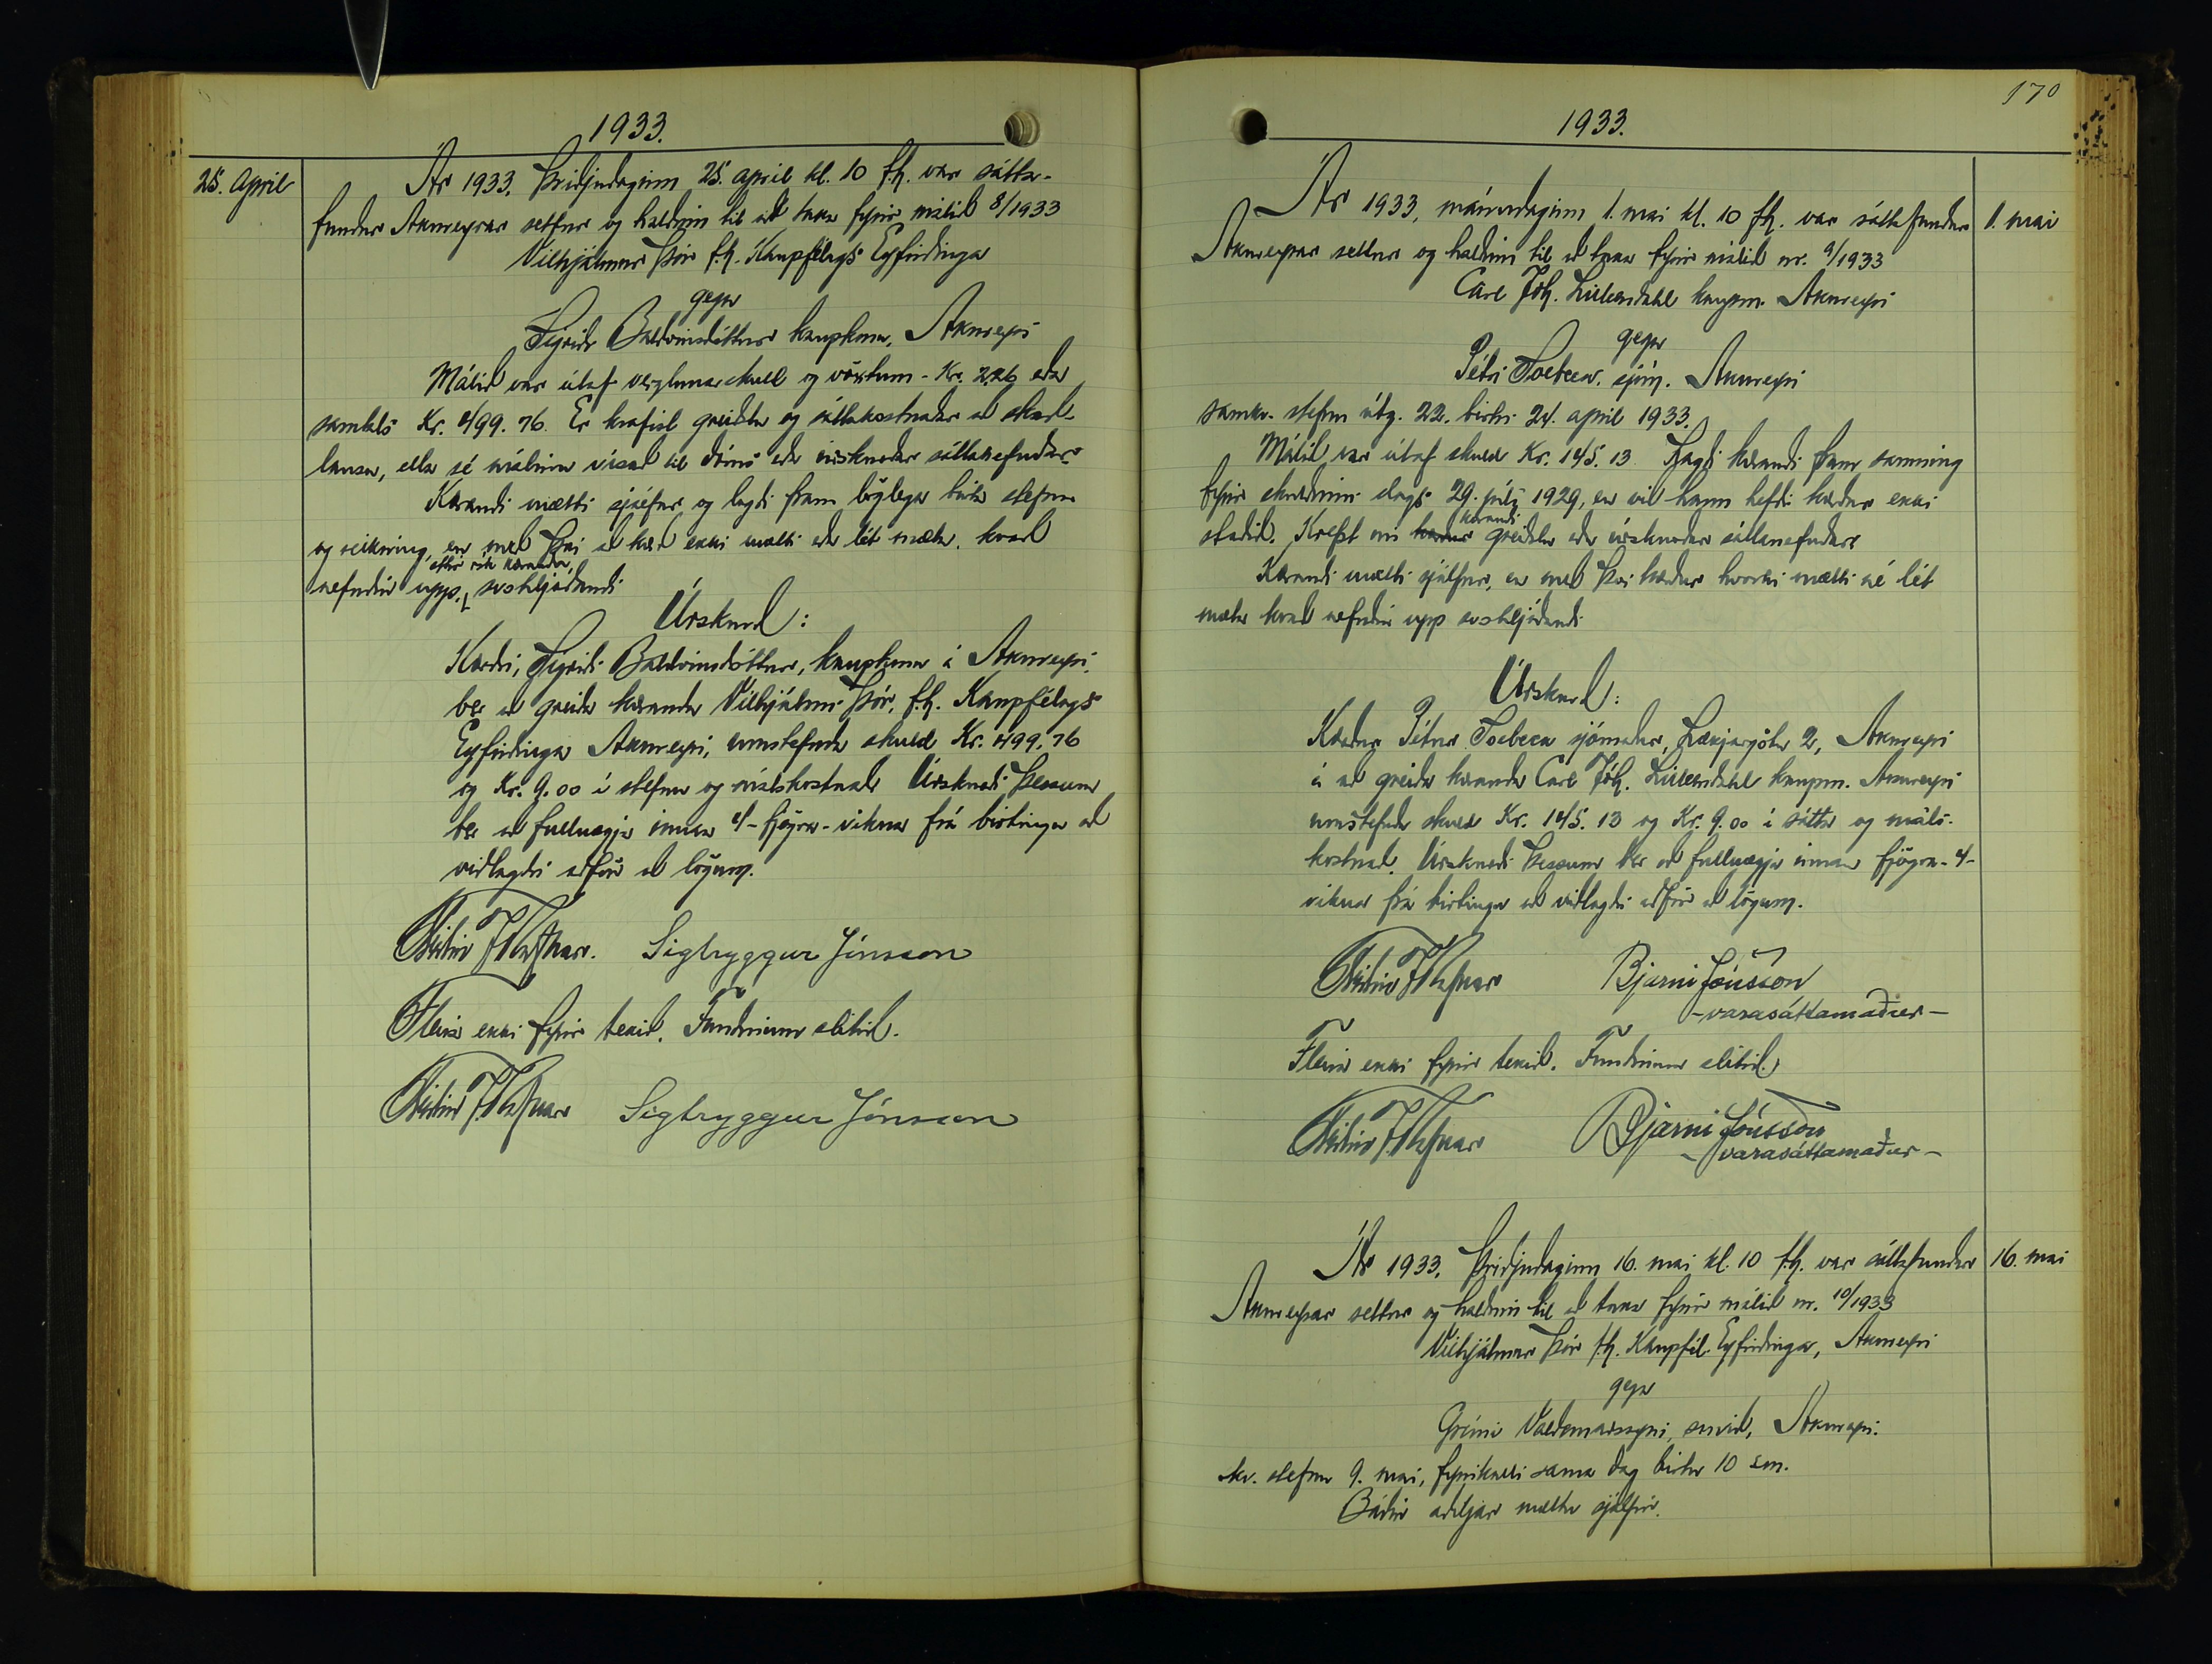 1933.
25. apríl
Ár 1933. Þriðjudaginn 25. apríl kl. 10 f.h. var sátta-
fundur Akureyrar settur og haldinn til að taka fyrir málið 8/1933
Vilhjálmur Þór f.h. Kaupfélags Eyfirðinga
gegn
Sigríði Baldvinsdóttur kaupkonu, Akureyri
Málið var útaf verzlunarskuld og vöxtum - Kr. 226 eða
samtals Kr. 499.76. Er krafist greiðslu og sáttakostnaðar að skað-
lausu, ella sé málinu vísað til dóms eða úrskurðar sáttanefndar.
Kærandi mætti sjálfur og lagði fram löglega birta stefnu
og reikning, en með því að kærð ekki mætti eða lét mæta, kvað
nefndin upp, eftir ósk kæranda, svohljóðandi
Úrskurð:
Kærðri, Sigríði Baldvinsdóttur, kaupkonu á Akureyri,
ber að greiða kæranda Vilhjálmi Þór, f.h. Kaupfélags
Eyfirðinga Akureyri, umstefnda skuld Kr. 499.76
og Kr. 9.00 í stefnu og málskostnað. Úrskurði þessum
ber að fullnægja innan 4-fjögra-vikna frá birtingu að
viðlagðri aðför að lögum.
Sigtryggur Jónsson
Fleira ekki fyrir tekið. Fundinum slitið.
Sigtryggur Jónsson
170
1933.
1. maí
Ár 1933, mánudaginn 1. maí kl. 10 fh. var sáttafundur
Akureyrar settur og haldinn til að taka fyrir málið nr. 9/1933
Carl Jóh. Lilliendahl kaupm. Akureyri
gegn
Pétri Soebeck. sjóm. Akureyri
samkv. stefnu útg. 22. birtri 24. apríl 1933.
Málið var útaf skuld Kr. 145.13 Lagði kærandi fram samning
fyrir skuldinni dags. 29. júlí 1929, en við hann hefði kærður ekki
staðið. Krefst nú kærður kærandi greiðslu eða úrskurðar sáttanefndar.
Kærandi mætti sjálfur, en með því kærður hvorki mætti né lét
mæta kvað nefndin upp svohljóðandi
Úrskurð:
Kærður Pétur Soebeck sjómaður, Lækjargötu 2, Akureyri
á að greiða kæranda Carl Jóh. Lilliendahl kaupm. Akureyri
umstefnda skuld Kr. 145.13 og Kr. 9.00 í sátta og máls-
kostnað. Úrskurði þessum ber að fullnægja innan fjögra-4-
vikna frá birtingu að viðlagðri aðför að lögum.
Bjarni Jónsson
-varasáttamaður-
Fleira ekki fyrir tekið. Fundinum slitið.
Bjarni Jónsson
-varasáttamaður-
16. maí
Ár 1933. Þriðjudaginn 16. maí kl. 10 f.h. var sáttafundur
Akureyrar settur og haldinn til að taka fyrir málið nr. 10/1933
Vilhjálmur Þór f.h. Kaupfél. Eyfirðinga, Akureyri
gegn
Grími Valdemarssyni, smið, Akureyri.
skv. stefnu 9. maí, fyrirkalli sama dag birtu 10 s.m.
Báðir aðiljar mættu sjálfir.